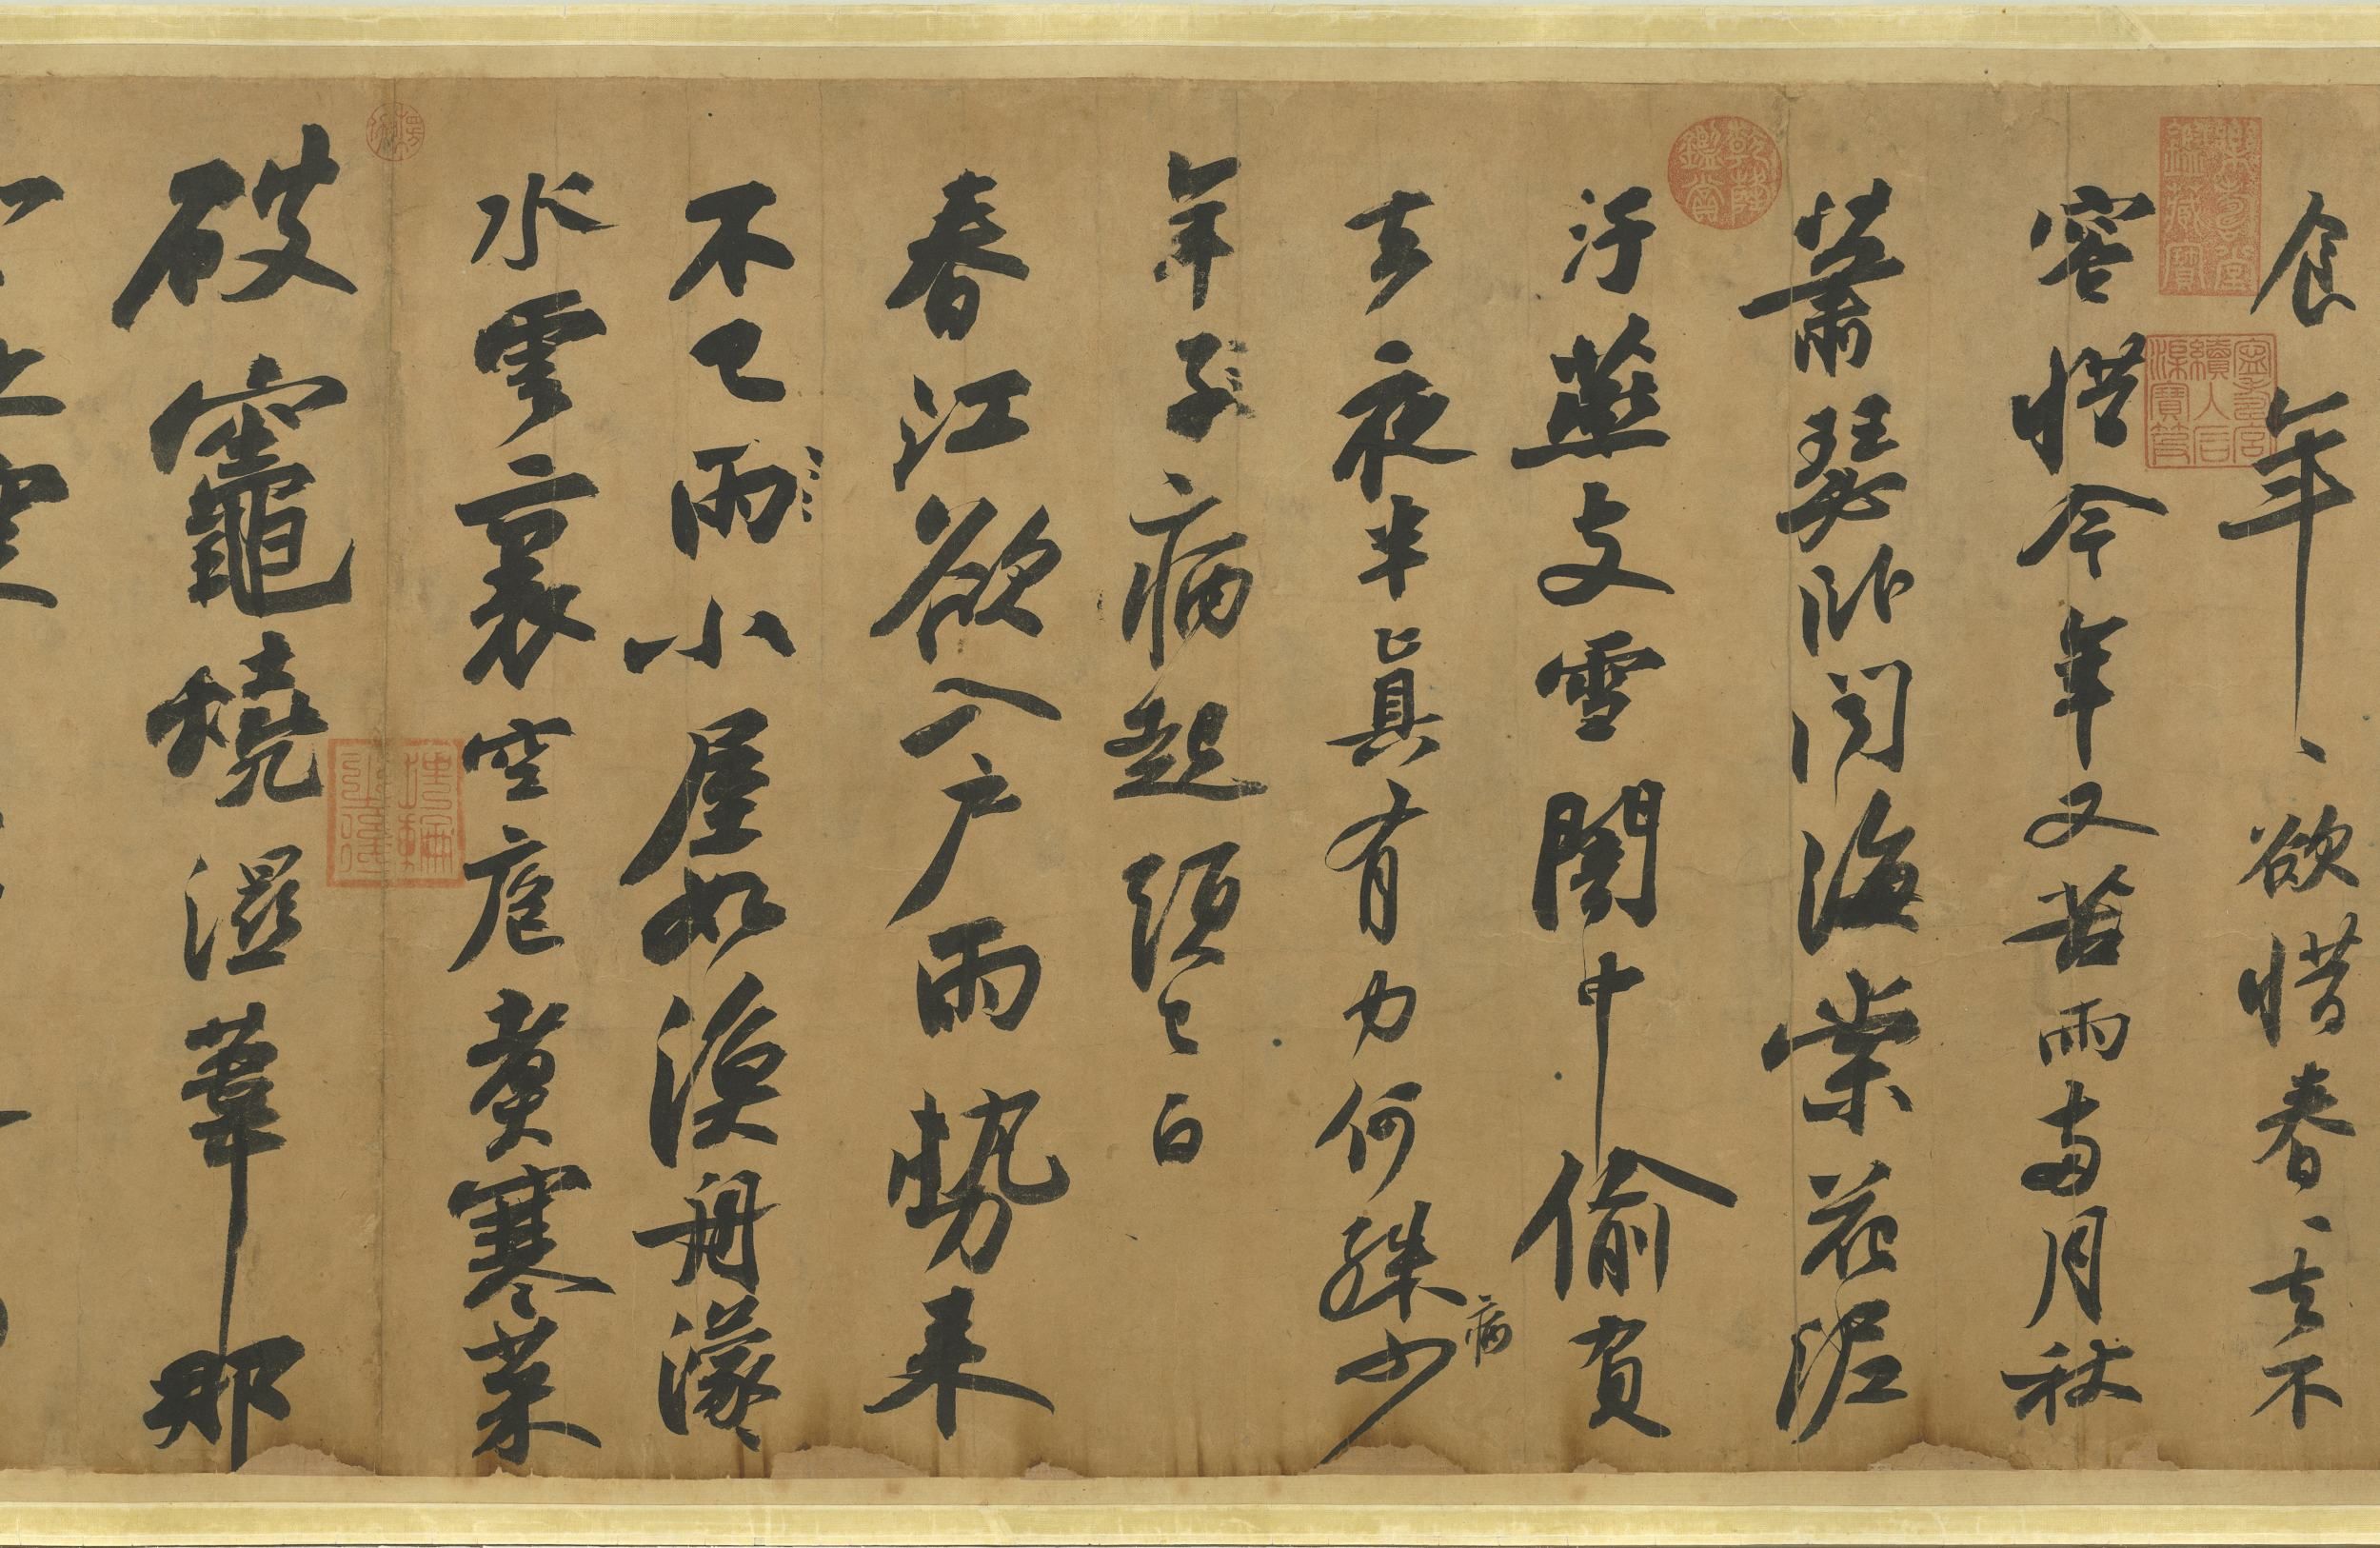 食年、欲惜春、去不
容惜今年又苦雨兩月秋
蕭瑟卧聞海棠花泥
汙燕支雪闇中偷負
去夜半真有力何殊少
病
年子病起頭已白
春江欲入戶雨勢來
不已雨小屋如漁舟濛
水雲裏空庖煑寒菜
破竈燒濕葦那
乾隆鑑賞